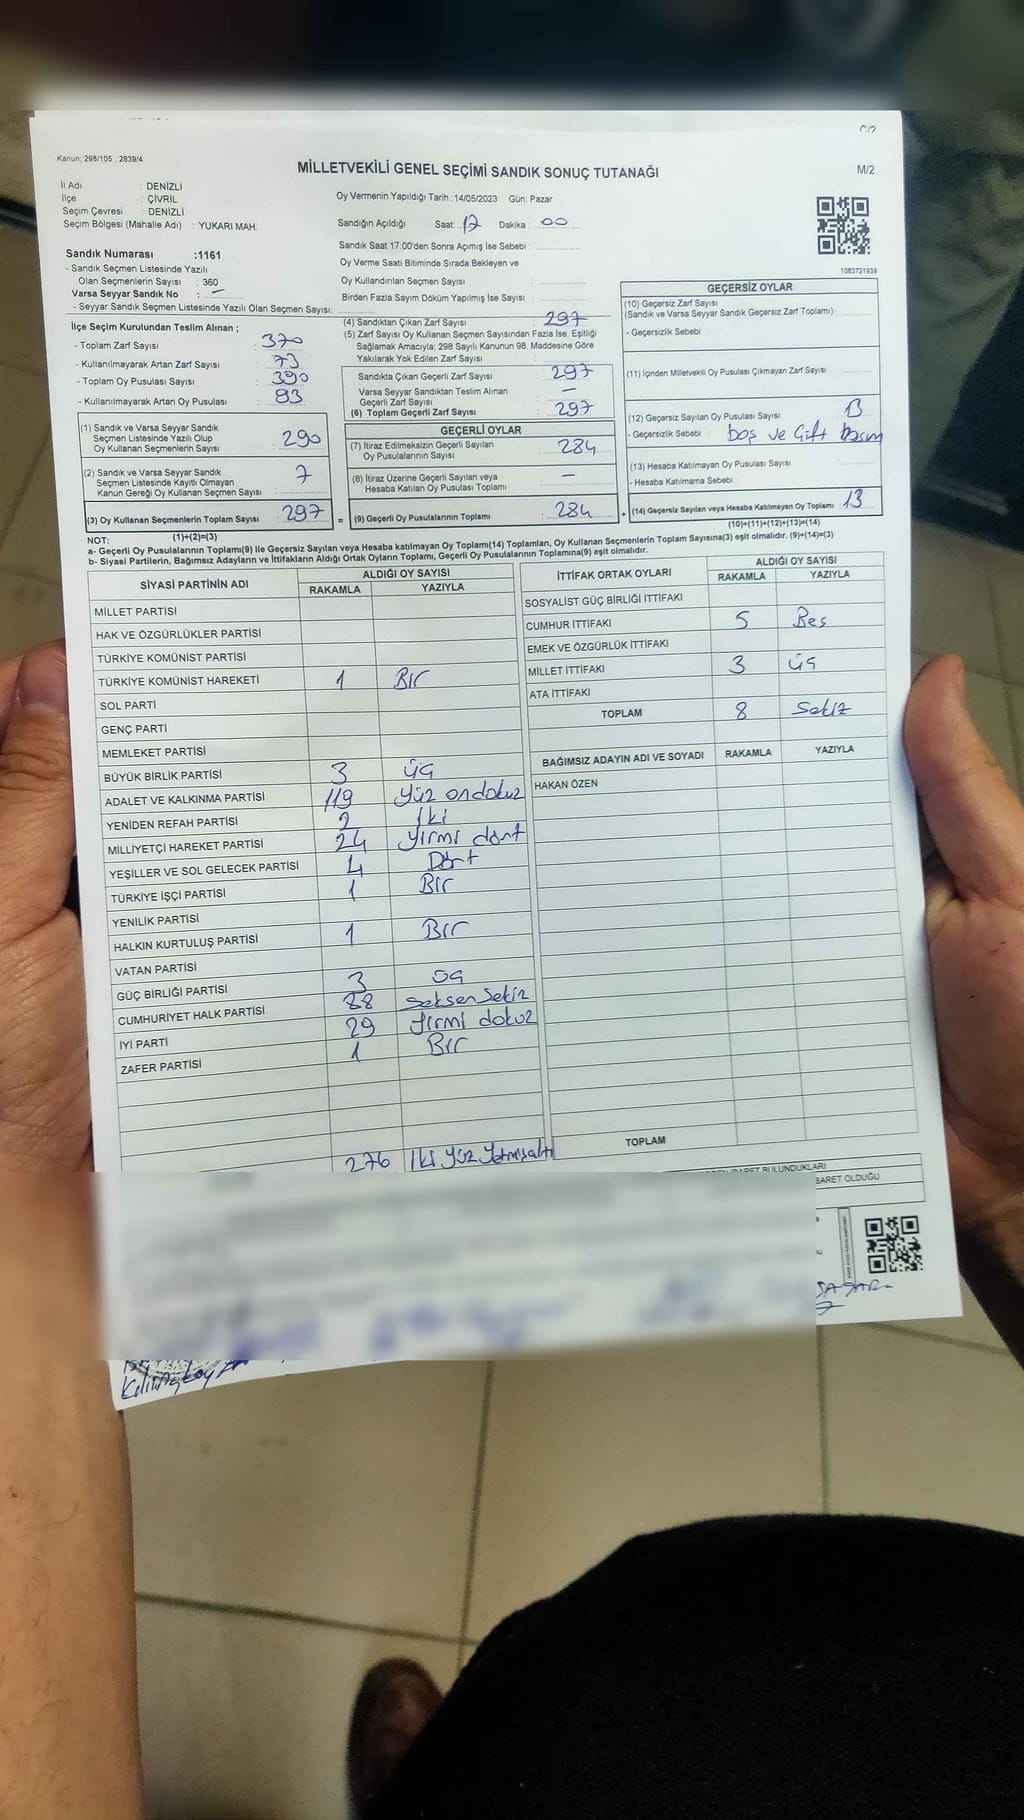 Kanun; 298/105 , 2839/4
MİLLETVEKİLİ GENEL SEÇİMİ SANDIK SONUÇ TUTANAĞI
M/2
İl Adı : DENİZLİ
İlçe : ÇİVRİL
Seçim Çevresi : DENİZLİ
Seçim Bölgesi (Mahalle Adı) : YUKARI MAH.
Oy Vermenin Yapıldığı Tarih :14/05/2023 Gün: Pazar
Sandığın Açıldığı Saat: 17 Dakika : 00
Sandık Saat 17:00'den Sonra Açımış İse Sebebi :
Oy Verme Saati Bitiminde Sırada Bekleyen ve
Oy Kullandırılan Seçmen Sayısı :
Birden Fazla Sayım Döküm Yapılmış İse Sayısı :
1083721939
Sandık Numarası :1161
- Sandık Seçmen Listesinde Yazılı
Olan Seçmenlerin Sayısı : 360
Varsa Seyyar Sandık No : –
- Seyyar Sandık Seçmen Listesinde Yazılı Olan Seçmen Sayısı:
İlçe Seçim Kurulundan Teslim Alınan ;
- Toplam Zarf Sayısı : 370
- Kullanılmayarak Artan Zarf Sayısı : 73
- Toplam Oy Pusulası Sayısı : 390
- Kullanılmayarak Artan Oy Pusulası : 93
(1) Sandık ve Varsa Seyyar Sandık
Seçmen Listesinde Yazılı Olup
Oy Kullanan Seçmenlerin Sayısı : 290
(2) Sandık ve Varsa Seyyar Sandık
Seçmen Listesinde Kayıtlı Olmayan
Kanun Gereği Oy Kullanan Seçmen Sayısı : 7
(3) Oy Kullanan Seçmenlerin Toplam Sayısı : 297
(1)+(2)=(3)
(4) Sandıktan Çıkan Zarf Sayısı : 297
(5) Zarf Sayısı Oy Kullanan Seçmen Sayısından Fazla İse, Eşitliği
Sağlamak Amacıyla; 298 Sayılı Kanunun 98. Maddesine Göre
Yakılarak Yok Edilen Zarf Sayısı :
Sandıkta Çıkan Geçerli Zarf Sayısı : 297
Varsa Seyyar Sandıktan Teslim Alınan
Geçerli Zarf Sayısı : –
(6) Toplam Geçerli Zarf Sayısı : 297
GEÇERLİ OYLAR
(7) İtiraz Edilmeksizin Geçerli Sayılan
Oy Pusulalarının Sayısı : 284
(8) İtiraz Üzerine Geçerli Sayılan veya
Hesaba Katılan Oy Pusulası Toplamı : –
= (9) Geçerli Oy Pusulalarının Toplamı : 284
GEÇERSİZ OYLAR
(10) Geçersiz Zarf Sayısı
(Sandık ve Varsa Seyyar Sandık Geçersiz Zarf Toplamı) :
- Geçersizlik Sebebi :
(11) İçinden Milletvekili Oy Pusulası Çıkmayan Zarf Sayısı :
(12) Geçersiz Sayılan Oy Pusulası Sayısı : 13
- Geçersizlik Sebebi : boş ve Çift basım
(13) Hesaba Katılmayan Oy Pusulası Sayısı :
- Hesaba Katılmama Sebebi :
+ (14) Geçersiz Sayılan veya Hesaba Katılmayan Oy Toplamı : 13
(10)+(11)+(12)+(13)=(14)
NOT:
a- Geçerli Oy Pusulalarının Toplamı(9) ile Geçersiz Sayılan veya Hesaba katılmayan Oy Toplamı(14) Toplamları, Oy Kullanan Seçmenlerin Toplam Sayısına(3) eşit olmalıdır. (9)+(14)=(3)
b- Siyasi Partilerin, Bağımsız Adayların ve İttifakların Aldığı Ortak Oyların Toplamı, Geçerli Oy Pusulalarının Toplamına(9) eşit olmalıdır.
SİYASİ PARTİNİN ADI ALDIĞI OY SAYISI
RAKAMLA YAZIYLA
MİLLET PARTİSİ
HAK VE ÖZGÜRLÜKLER PARTİSİ
TÜRKİYE KOMÜNİST PARTİSİ
TÜRKİYE KOMÜNİST HAREKETİ 1 Bir
SOL PARTİ
GENÇ PARTİ
MEMLEKET PARTİSİ
BÜYÜK BİRLİK PARTİSİ 3 üç
ADALET VE KALKINMA PARTİSİ 119 yüz on dokuz
YENİDEN REFAH PARTİSİ 2 iki
MİLLİYETÇİ HAREKET PARTİSİ 24 yirmi dört
YEŞİLLER VE SOL GELECEK PARTİSİ 4 Dört
TÜRKİYE İŞÇİ PARTİSİ 1 Bir
YENİLİK PARTİSİ
HALKIN KURTULUŞ PARTİSİ 1 Bir
VATAN PARTİSİ
GÜÇ BİRLİĞİ PARTİSİ 3 üç
CUMHURİYET HALK PARTİSİ 88 seksen sekiz
İYİ PARTİ 29 yirmi dokuz
ZAFER PARTİSİ 1 Bir
276 İki yüz yetmişaltı
İTTİFAK ORTAK OYLARI ALDIĞI OY SAYISI
RAKAMLA YAZIYLA
SOSYALİST GÜÇ BİRLİĞİ İTTİFAKI
CUMHUR İTTİFAKI 5 Beş
EMEK VE ÖZGÜRLÜK İTTİFAKI
MİLLET İTTİFAKI 3 üç
ATA İTTİFAKI
TOPLAM 8 Sekiz
BAĞIMSIZ ADAYIN ADI VE SOYADI RAKAMLA YAZIYLA
HAKAN ÖZEN
TOPLAM
BULUNDUKLARI
OLDUĞU